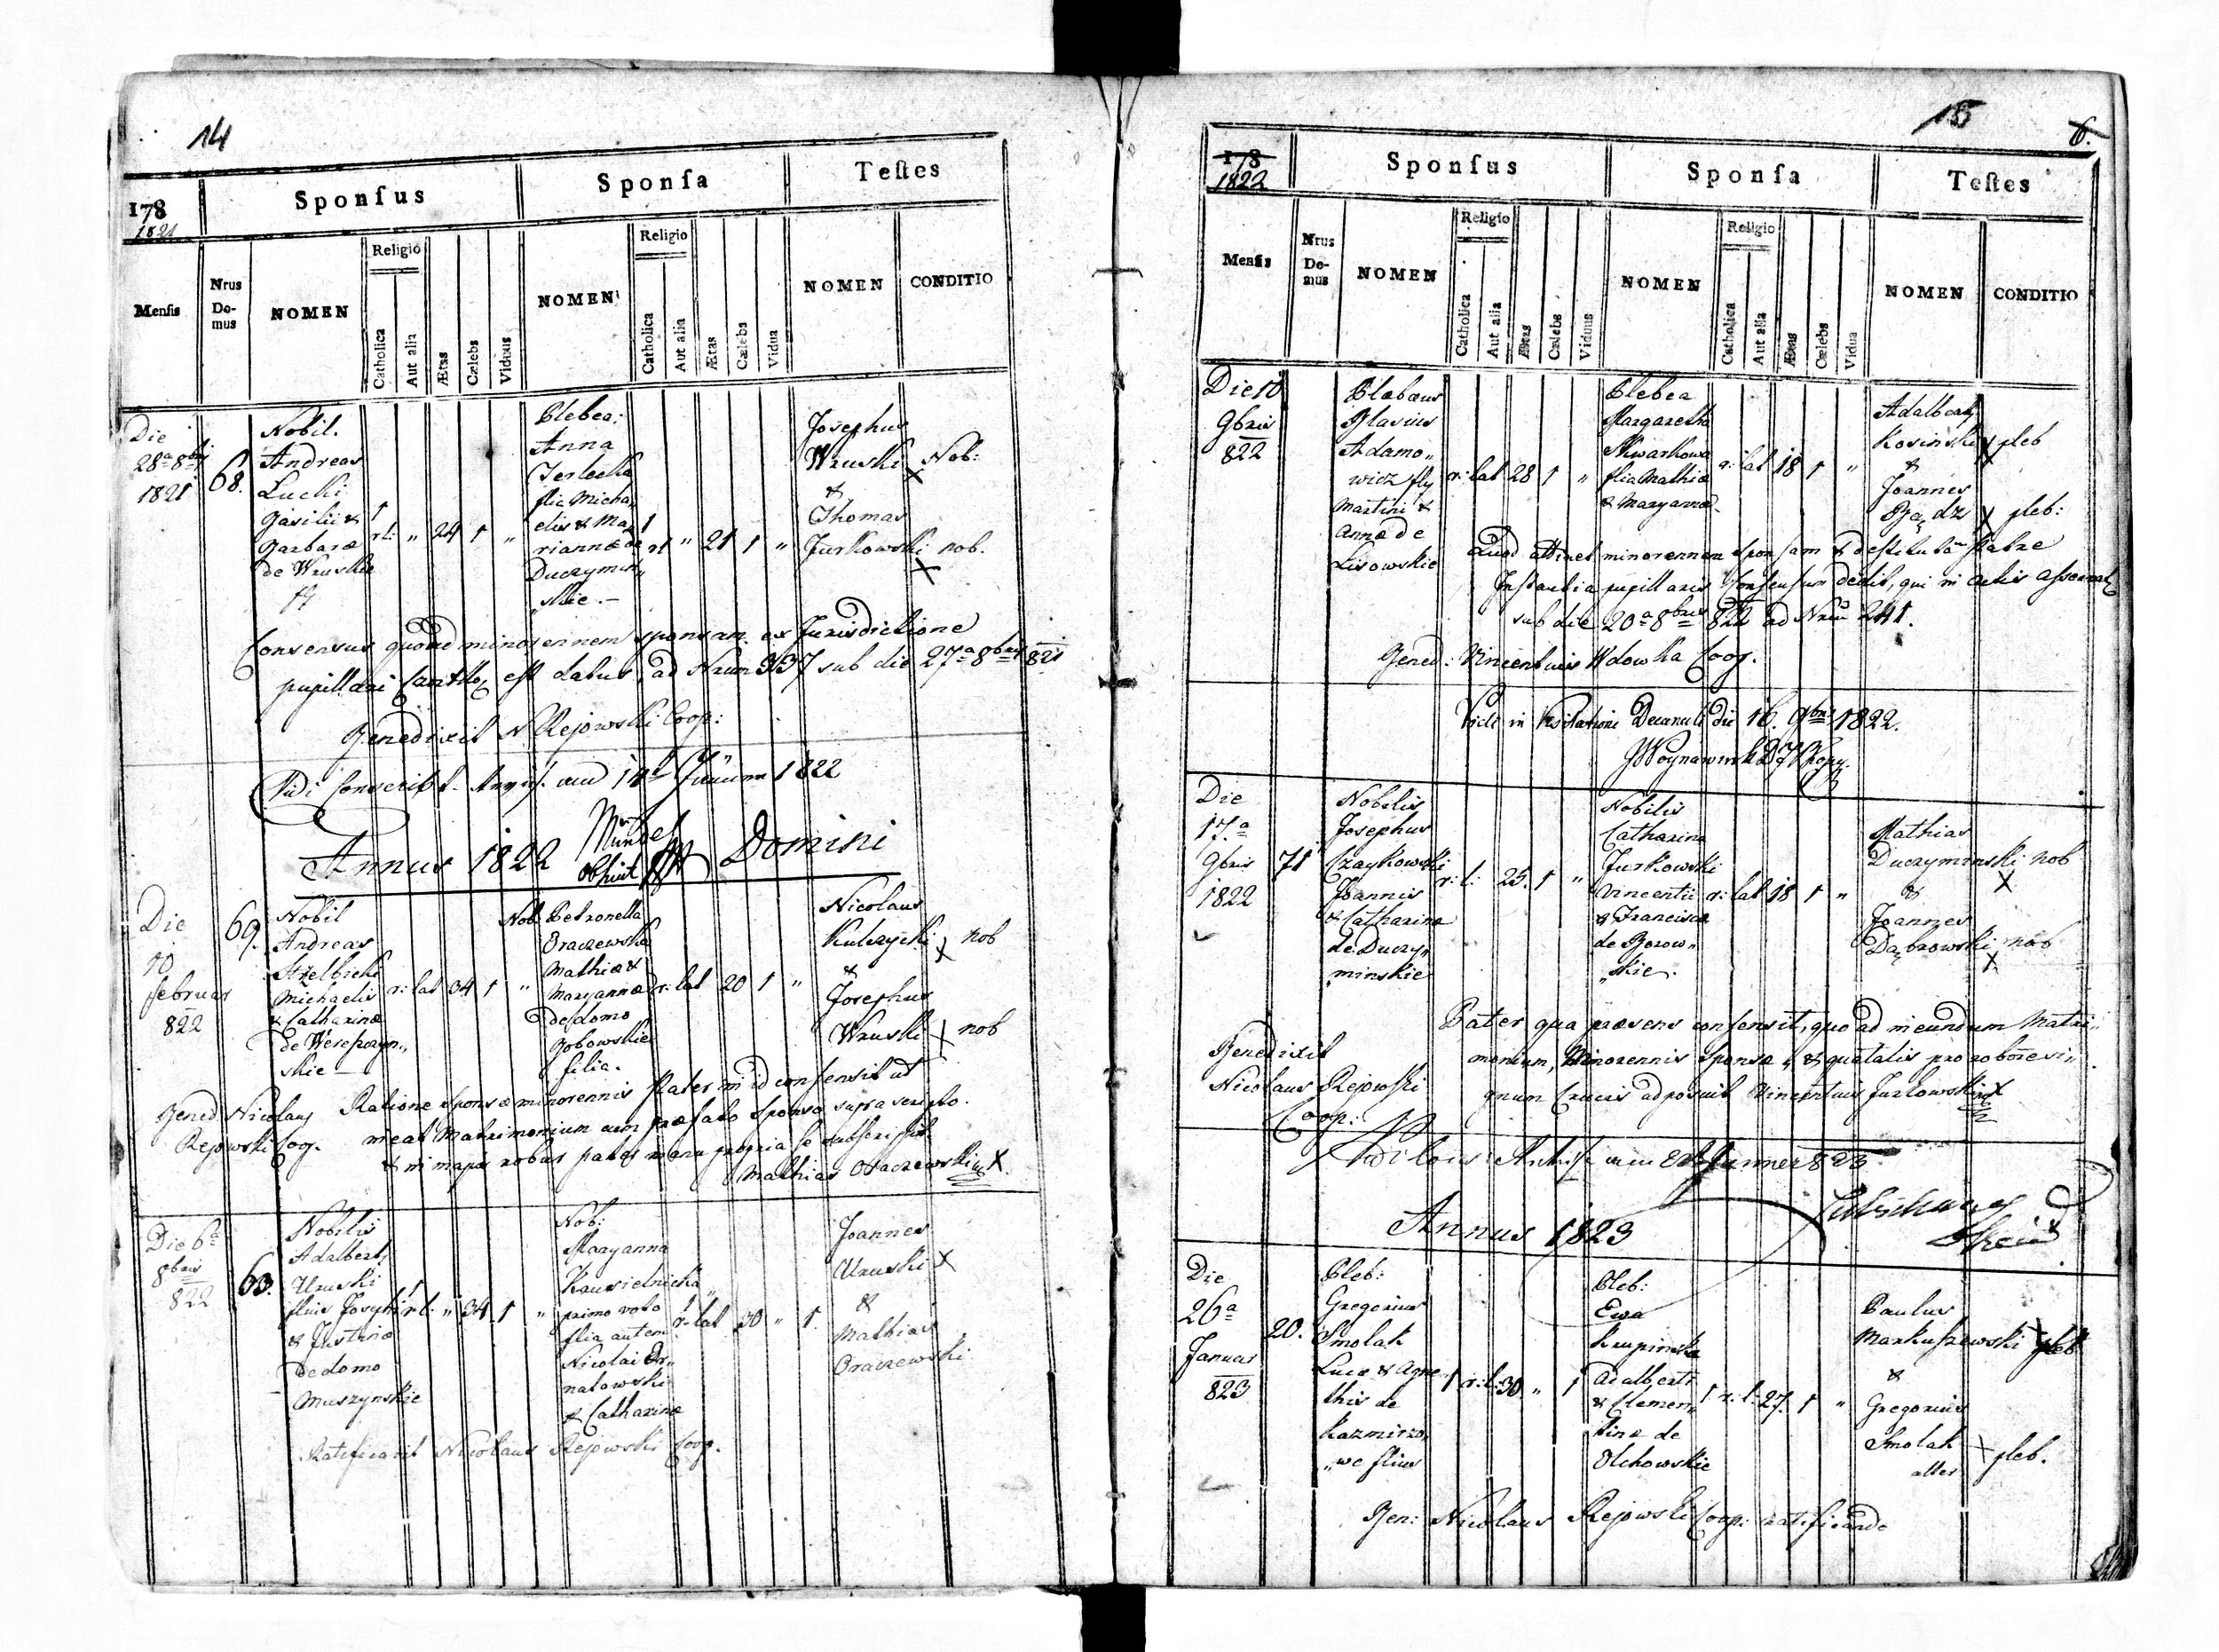 14
178
1821
Sponſus
Sponſa
Teſtes
Menſis
Nrus
Do-
mus
NOMEN
Religio
Catholica
Aut alia
Ætas
Cælebs
Viduus
NOMEN
Religio
Catholica
Aut alia
Ætas
Cælebs
Vidua
NOMEN
CONDITIO
Die
28a 8bris
1821
68.
Nobil.
Andreas
Łucki
Basilii &
Barbaræ
de Wruskie
r: l: " 24 1 "
Plebea:
Anna
Terlecka
flia Micha
elis & Ma
riannæ de
Duczymin
skie.
rl " 21 1 "
Josephus
Wruski Nob:
X
&
Thomas
Jurkowski nob.
X
Consensus quoad minorennem sponsam ex Jurisdictione
pupillari est datus, ad Nrum 337 sub die 27a 8bris 821
Benedixit N Rejowski Coop:
Vidi Conscript. Revis. am 14t Jäner 1822
Annus 1822 Domini
Die
10
februar
822
69.
Nobil
Andreas
Strzelbicki
Michaelis
& Catharinæ
de
skie
r: lat 34 1 "
Nob. Petronella
Oraczewska
Mathiæ &
Maryannæ
de domo
Bobowskie
filia.
r: lat 20 1 "
Nicolaus
Kulczycki X nob
&
Josephus
Wruski X nob
Bened Nicolaus
Rejowski Coop.
Ratione Sponsæ minorennis Pater in id consensit ut
ineat Matrimonium cum præfato Sponso supra scripto.
& in majus robur pater manu propria se subscripsit
Mathias Oraczewski X
Die 6a
8bris
822
63.
Nobilis
Adalbertus
Uruski
flius Josephi
& Justinæ
de domo
Muszynskie
r l: " 34 1 "
Nob:
Maryanna
Kausielnicka
primo voto
flia autem
Nicolai Or
natowski
& Catharinæ
r: lat 30 " 1.
Joannes
Uruski X
&
Mathias
Oraczewski
Ratificavit Nicolaus Rejowski Coop.
15
6.
178
1822
Sponſus
Sponſa
Teſtes
Menſis
Nrus
Do-
mus
NOMEN
Religio
Catholica
Aut alia
Ætas
Cælebs
Viduus
NOMEN
Religio
Catholica
Aut alia
Ætas
Cælebs
Vidua
NOMEN
CONDITIO
Die 10
9bris
822
Plæbæus
Blasius
Adamo"
wicz
Martini &
Annæ de
Lisowskie
r: lat 28 1 "
Plebea
Margaretha
Skwarkowa
flia Mathiæ
& Maryannæ
r: lat 18 1 "
Adalbertus
Kosinski X pleb
&
Joannes
Bądz X pleb:
Quod attinet minorennem Sponsam & destitutam Patre
Instantia pupillaris Consensum dedit, qui in actis asservatur
sub die 20a 8bris 822 ad Nrum 241.
Bened: Vincentius Wdowka Coop.
Vidi in Visitatione Decanali die 16. 9bris 1822.
Die
17a
9bris
1822
71
Nobilis
Josephus
Czaykowski
Joannis
& Catharinæ
de Duczy"
"minskie
r: l: 25. 1 "
Nobilis
Catharina
Jurkowski
Vincentii
& Franciscæ
de Borow"
"skie.
r: lat 18 1 "
Mathias
Duczyminski nob
X
&
Joannes
Dąbrowski nob
X
Benedixit
Nicolaus Rejowski
Coop:
Pater qua præsens consensit, quo ad ineundum Matri"
monium, Minorennis Sponsæ, & qua talis pro robore si"
gnum Crucis adposuit Vincentius Jurkowski X
Annus 1823
Die
26a
Januar
823
20.
Pleb:
Gregorius
Smolak
Lucæ & Agne
this de
Kazmirzo
"we flius
1 r: l: 30 " 1
Pleb:
Ewa
Krupinska
Adalberti
& Clemen"
tinæ de
Olchowskie
1 r: l: 27. 1 "
Paulus
Markuszewski X pleb
&
Gregorius
Smolak X pleb.
alter
Ben: Nicolaus Rejowski Coop: ratificando